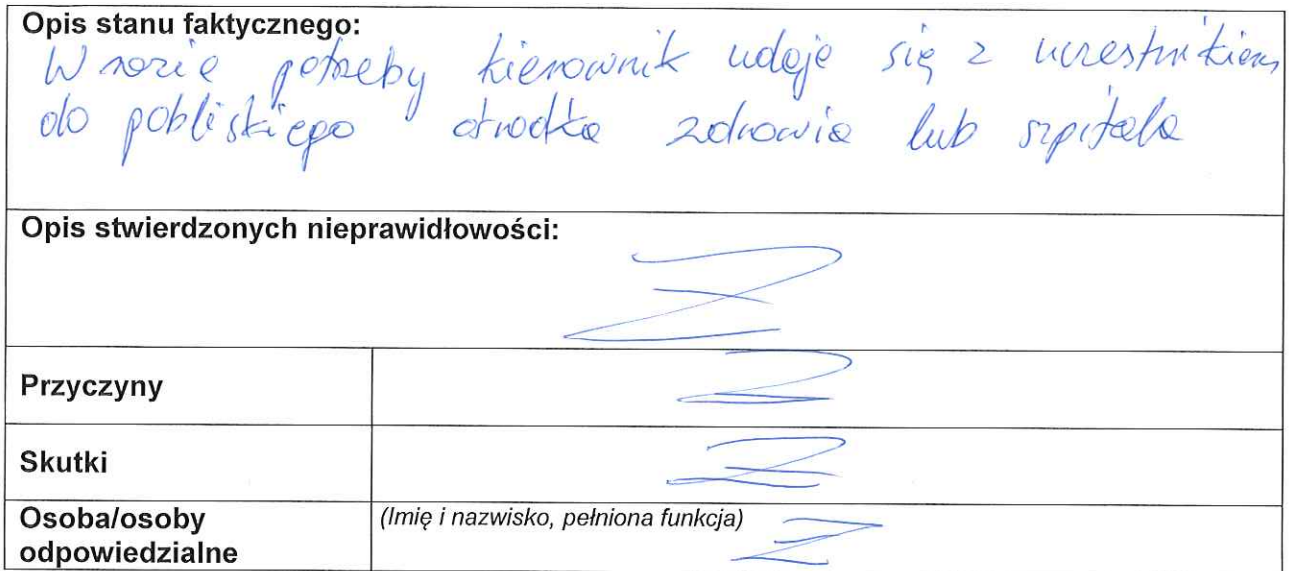 Opis stanu faktycznego:
W razie potrzeby kierownik udaje się z uczestnikiem
do pobliskiego ośrodka zdrowia lub szpitala
Opis stwierdzonych nieprawidłowości:
Przyczyny
Skutki
Osoba/osoby
odpowiedzialne
(Imię i nazwisko, pełniona funkcja)